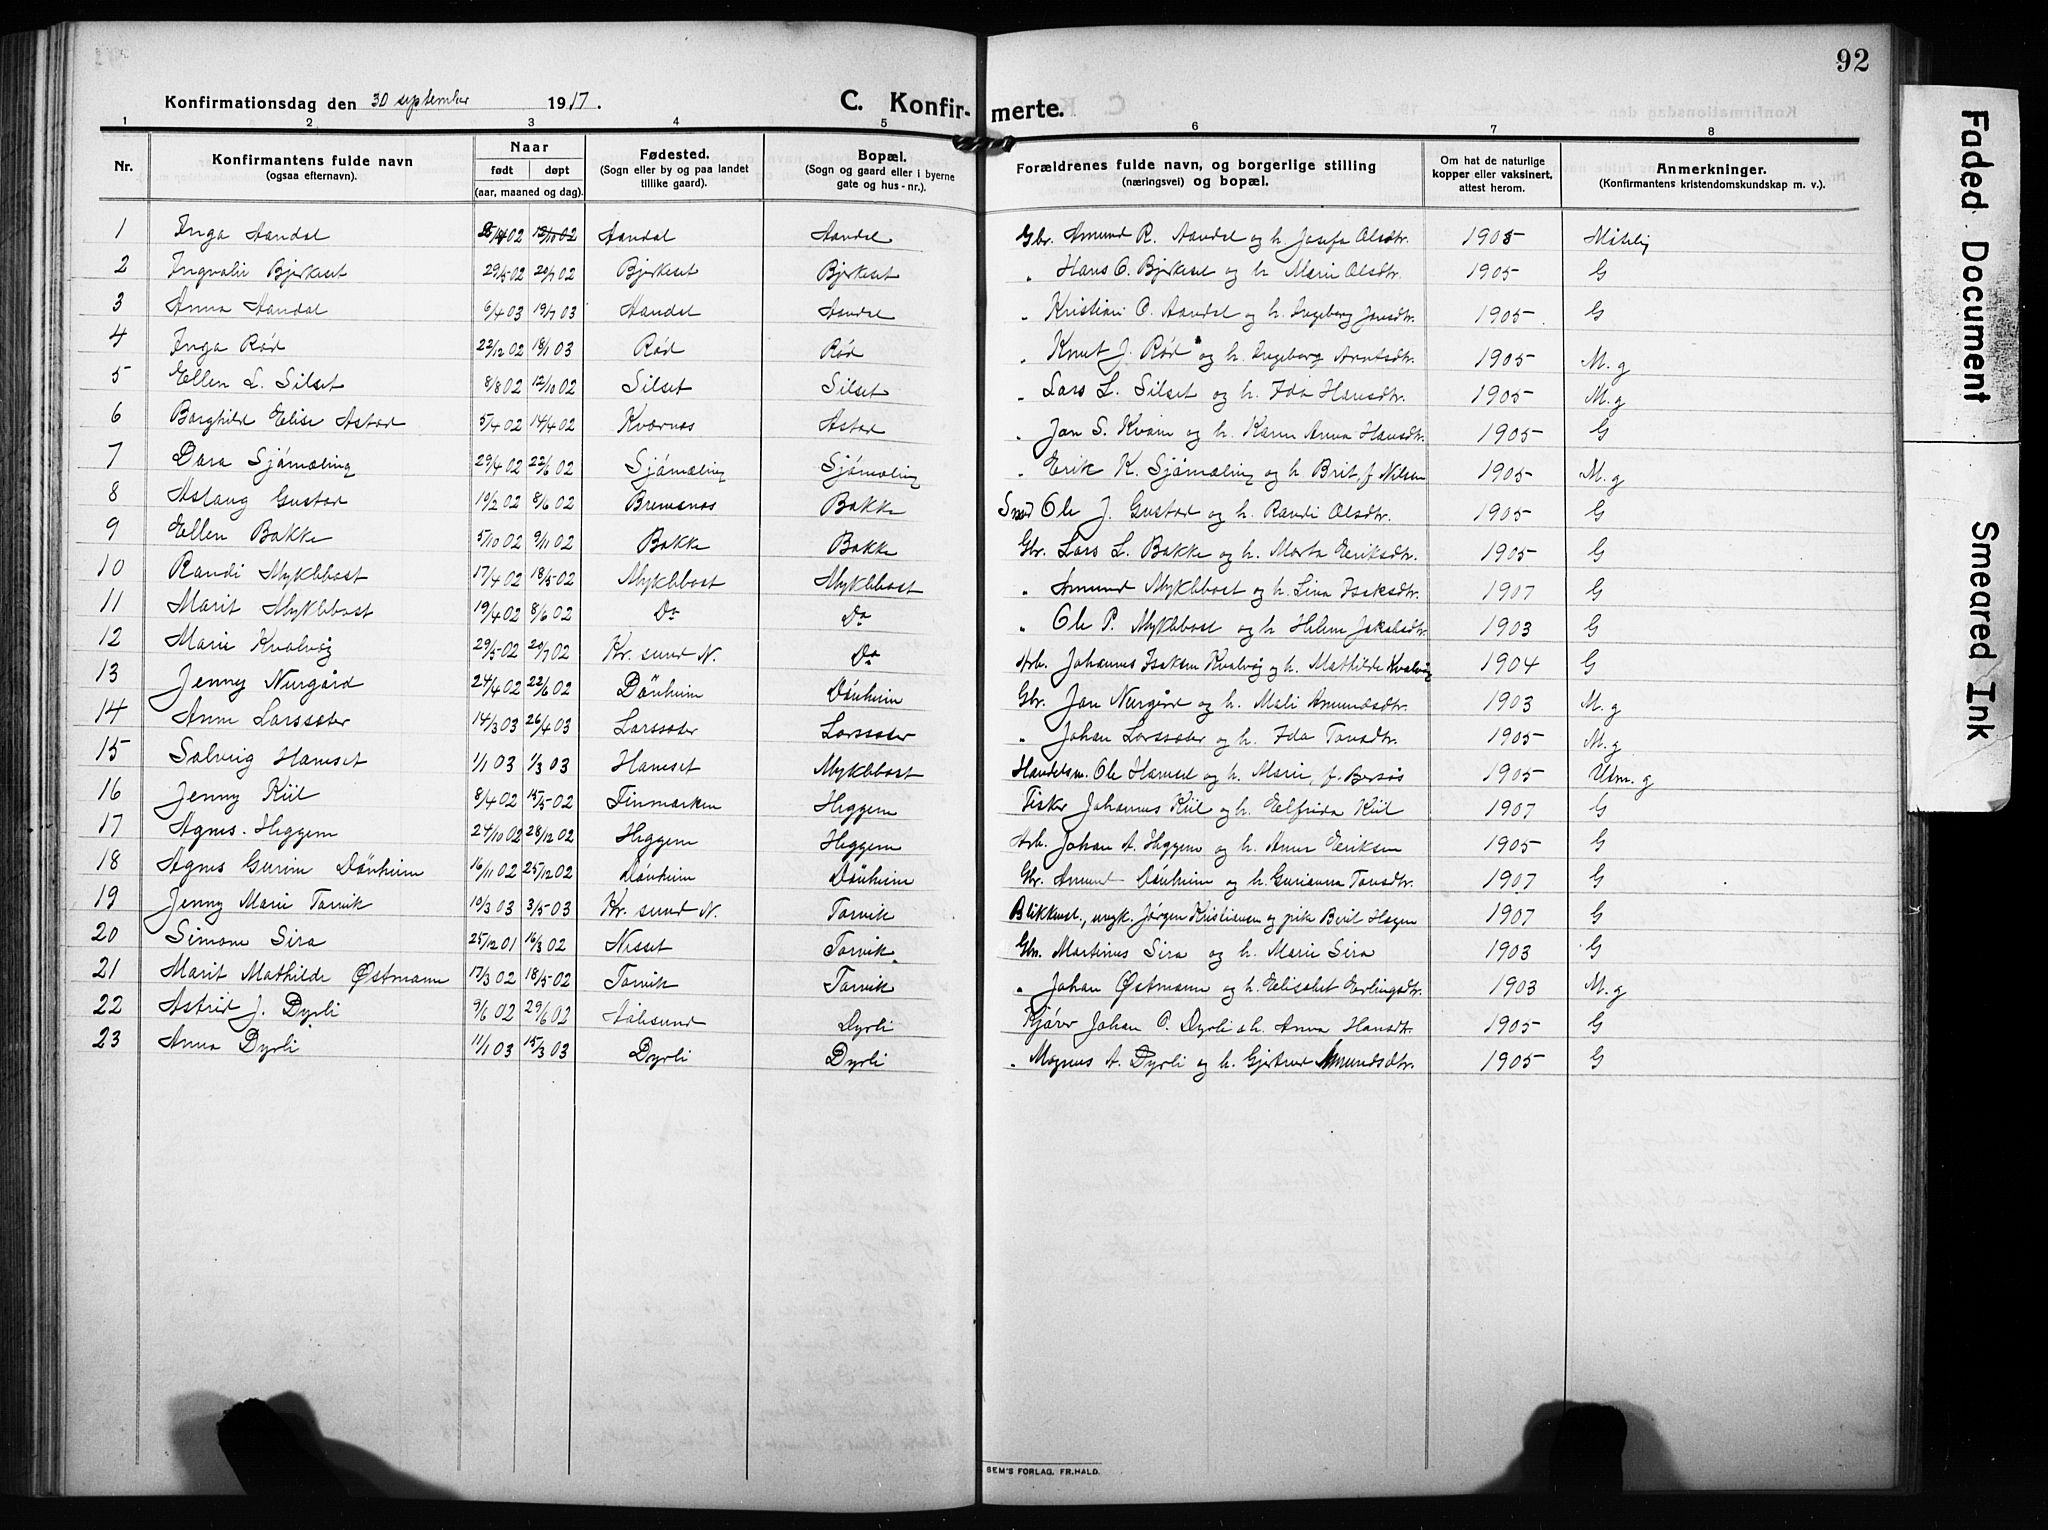 92
Konfirmationsdag den 30 september 1917.
C. Konfir- merte.
1 2 3 4 5 6 7 8
Nr. Konfirmantens fulde navn (ogsaa efternavn). Naar født døpt (aar, maaned og dag). Fødested. (Sogn eller by og paa landet tillike gaard). Bopæl. (Sogn og gaard eller i byerne gate og hus-nr.). Forældrenes fulde navn, og borgerlige stilling (næringsvei) og bopæl. Om hat de naturlige kopper eller vaksinert, attest herom. Anmerkninger. (Konfirmantens kristendomskundskap m. v.).
1 Inga Aandal 12/10 02 Aandal Aandal Gbr. Amund R. Aandal og h. Josefa Olsdtr. 1905
2 Ingvalii Bjerkeset 29/5 02 20/7 02 Bjerkeset Bjerkeset " Hans O. Bjerkeset og h. Marie Olsdtr. 1905 G
3 Anna Aandal 6/4 03 19/7 03 Aandal Aandal " Kristian O. Aandal og h. Ingeborg Jonsdtr. 1905 G
4 Inga Rød 22/12 02 18/1 03 Rød Rød " Knut J. Rød og h. Ingeborg Arntsdtr. 1905 M. g
5 Ellen L. Silset 8/8 02 12/10 02 Silset Silset " Lars L. Silset og h. Ida Hansdtr. 1905 M. g
6 Borghild Elise Astad 5/4 02 14/4 02 Kvernes Astad " Jon S. Kvam og h. Karen Anna Hansdtr. 1905 G
7 Dora Sjømæling 29/4 02 22/6 02 Sjømæling Sjømæling " Erik K. Sjømæling og h. Brit, f. Nilsen 1905 M. g
8 Aslaug Gustad 19/2 02 8/6 02 Bremsnes Bakke Smed Ole J. Gustad og h. Randi Olsdtr. 1905 G
9 Ellen Bakke 5/10 02 9/11 02 Bakke Bakke Gbr. Lars L. Bakke og h. Marta Eriksdtr. 1905 G
10 Randi Myklebost 17/4 02 18/5 02 Myklebost Myklebost " Amund Myklebost og h. Lina Isaksdtr. 1907 G
11 Marit Myklebost 19/4 02 8/6 02 Do Do " Ole P. Myklebost og h. Helene Jakobsdtr. 1903 G
12 Marie Kvalvåg 29/5 02 20/7 02 Kr. sund N. Do Arb. Johannes Isaksen Kvalvåg og h. Mathilde Kvalvåg 1904 G
13 Jenny Nergård 24/4 02 22/6 02 Dønheim Dønheim Gbr. Jon Nergård og h. Mali Amundsdtr. 1903 M. g
14 Anne Larssæter 14/3 03 26/4 03 Larssæter Larssæter " Johan Larssæter og h. Ida Tomsdtr. 1905 M. g
15 Solveig Hamset 1/1 03 1/3 03 Hamset Myklebost Handelsm. Ole Hamset og h. Marie, f. 1905 Utm. g
16 Jenny Kiil 8/4 02 15/5 02 Finmarken Heggem Fisker Johannes Kiil og h. Elfrida Kiil 1907 G
17 Agnes Heggem 24/10 02 28/12 02 Heggem Heggem Arb. Johan A. Heggem og h. Anne Eriksen 1905 G
18 Agnes Gurine Dønheim 16/11 02 25/12 02 Dønheim Dønheim Gbr. Amund Dønheim og h. Gurianna Tomsdtr. 1907 G
19 Jenny Marie Torvik 10/3 03 3/5 03 Kr. sund N. Torvik Blikkensl., ungk. Jørgen Kristiansen og pike Beret Hagen 1907 G
20 Simone Sira 25/12 01 16/3 02 Nesset Torvik Gbr. Martinus Sira og h. Marie Sira 1903 G
21 Marit Mathilde Østmann 17/3 02 18/5 02 Torvik Torvik " Johan Østmann og h. Elisabet Erlingsdtr. 1903 M. g
22 Astrid J. Dyrli 9/6 02 29/6 02 Aalesund Dyrli Kjører Johan O. Dyrli & h. Anna Hansdtr. 1905 G
23 Anna Dyrli 11/1 03 15/3 03 Dyrli Dyrli " Magnus A. Dyrli og h. Gjertrud Amundsdtr. 1905 G
SEM'S FORLAG, FR.HALD.
Faded Document
Smeared Ink